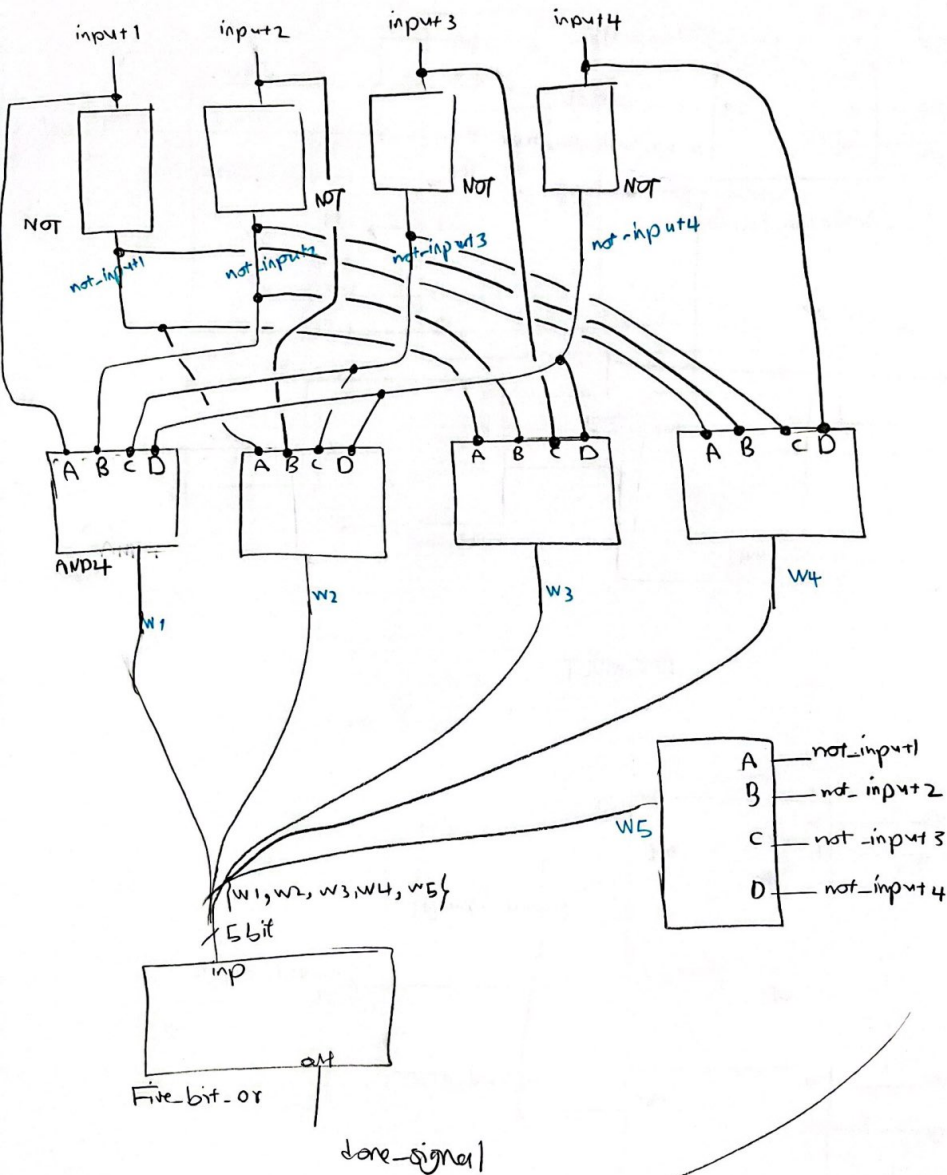 input1 input2 input3 input4
NOT NOT NOT NOT
not_input1 not_input2 not-input3 not-input4
A B C D A B C D A B C D A B C D
AND4
W1 W2 W3 W4
A not_input1
B not_input2
W5 C not_input3
D not_input4
{W1, W2, W3, W4, W5}
5 bit
inp
out
Five_bit_or
done_signal